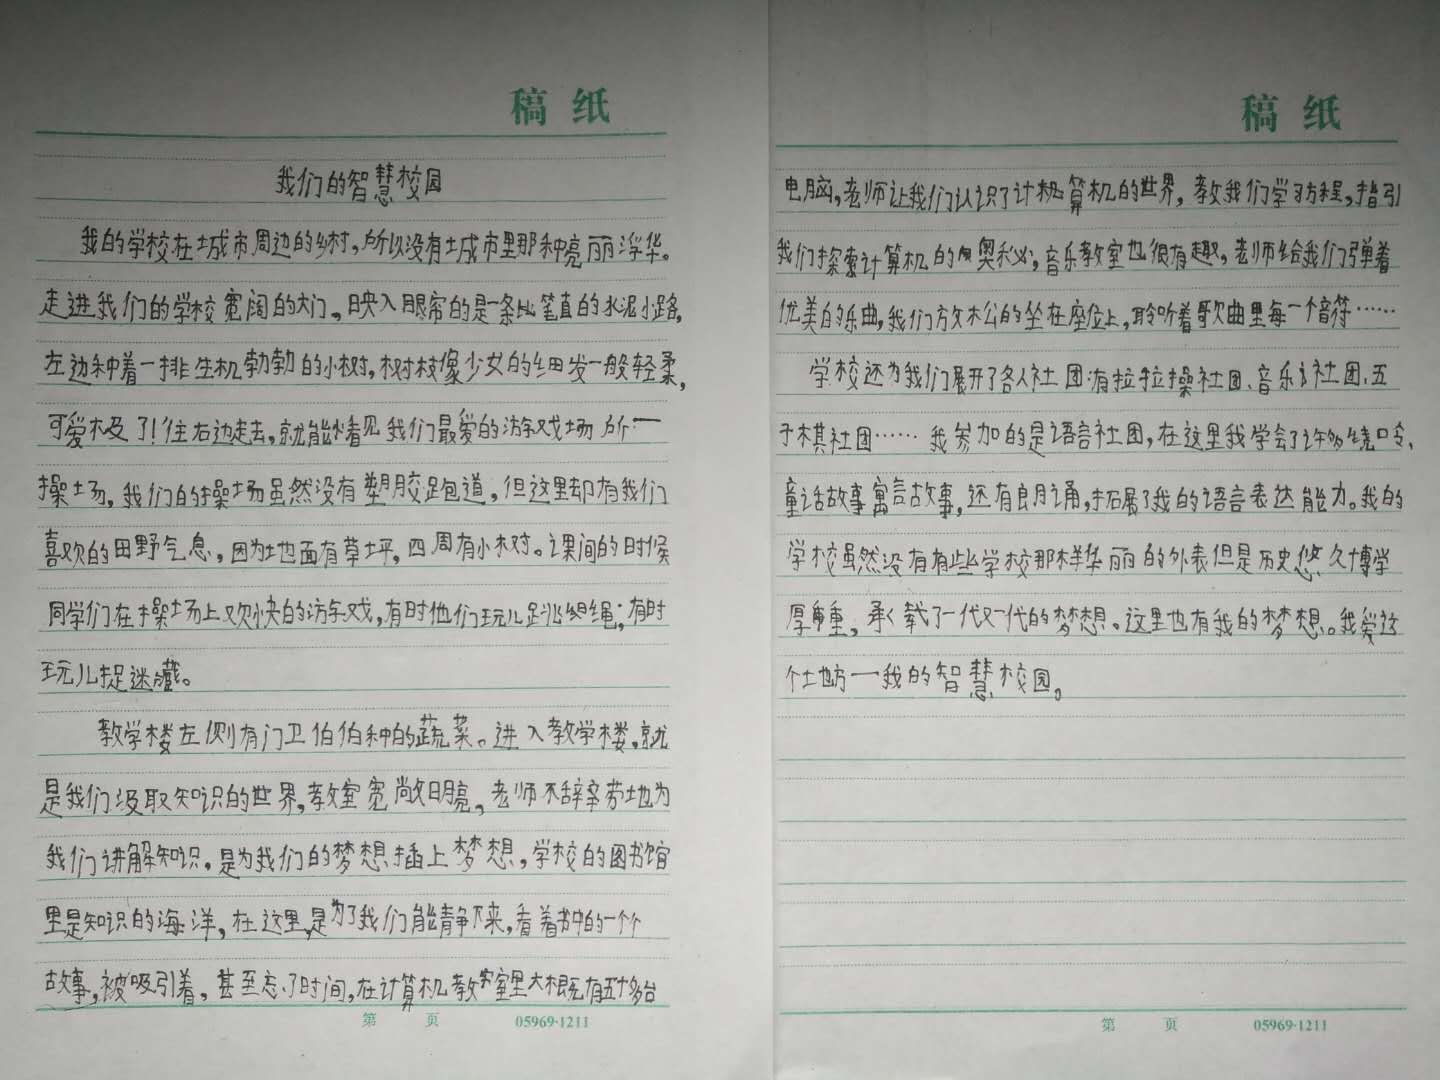 稿纸
我们的智慧校园
我的学校在城市周边的乡村，所以没有城市里那种亮丽浮华。
走进我们的学校宽阔的大门，映入眼帘的是一条比笔直的水泥小路，
左边种着一排生机勃勃的小树，树枝像少女的细发一般轻柔，
可爱极了！往右边走去，就能看见我们最爱的游戏场所一
操场，我们的操场虽然没有塑胶跑道，但这里却有我们
喜欢的田野气息，因为地面有草坪，四周有小树。课间的时候
同学们在操场上欢快的游戏，有时他们玩儿跳绳；有时
玩儿捉迷藏。
教学楼左侧有门卫伯伯种的蔬菜。进入教学楼，就
是我们汲取知识的世界，教室宽敞明亮，老师不辞辛劳地为
我们讲解知识。是为我们的梦想插上梦想，学校的图书馆
里是知识的海洋，在这里，是为了我们能静下来，看着书中的一个个
故事，被吸引着，甚至忘了时间，在计算机教室里大概有五十多台
第 页 05969·1211
稿纸
电脑，老师让我们认识了计机算机的世界，教我们学习方程，指引
我们探索计算机的奥秘，音乐教室也很有趣，老师给我们弹着
优美的乐曲，我们放松的坐在座位上，聆听着歌曲里每一个音符……
学校还为我们展开了各人社团：有拉拉操社团、音乐社团、五
子棋社团……我参加的是语言社团，在这里我学会了许多绕口令、
童话故事寓言故事，还有朗诵，拓展了我的语言表达能力。我的
学校虽然没有有些学校那样华丽的外表但是历史悠久博学
厚重，承载了一代又一代的梦想。这里也有我的梦想。我爱这
个地方一我的智慧校园。
第 页 05969·1211